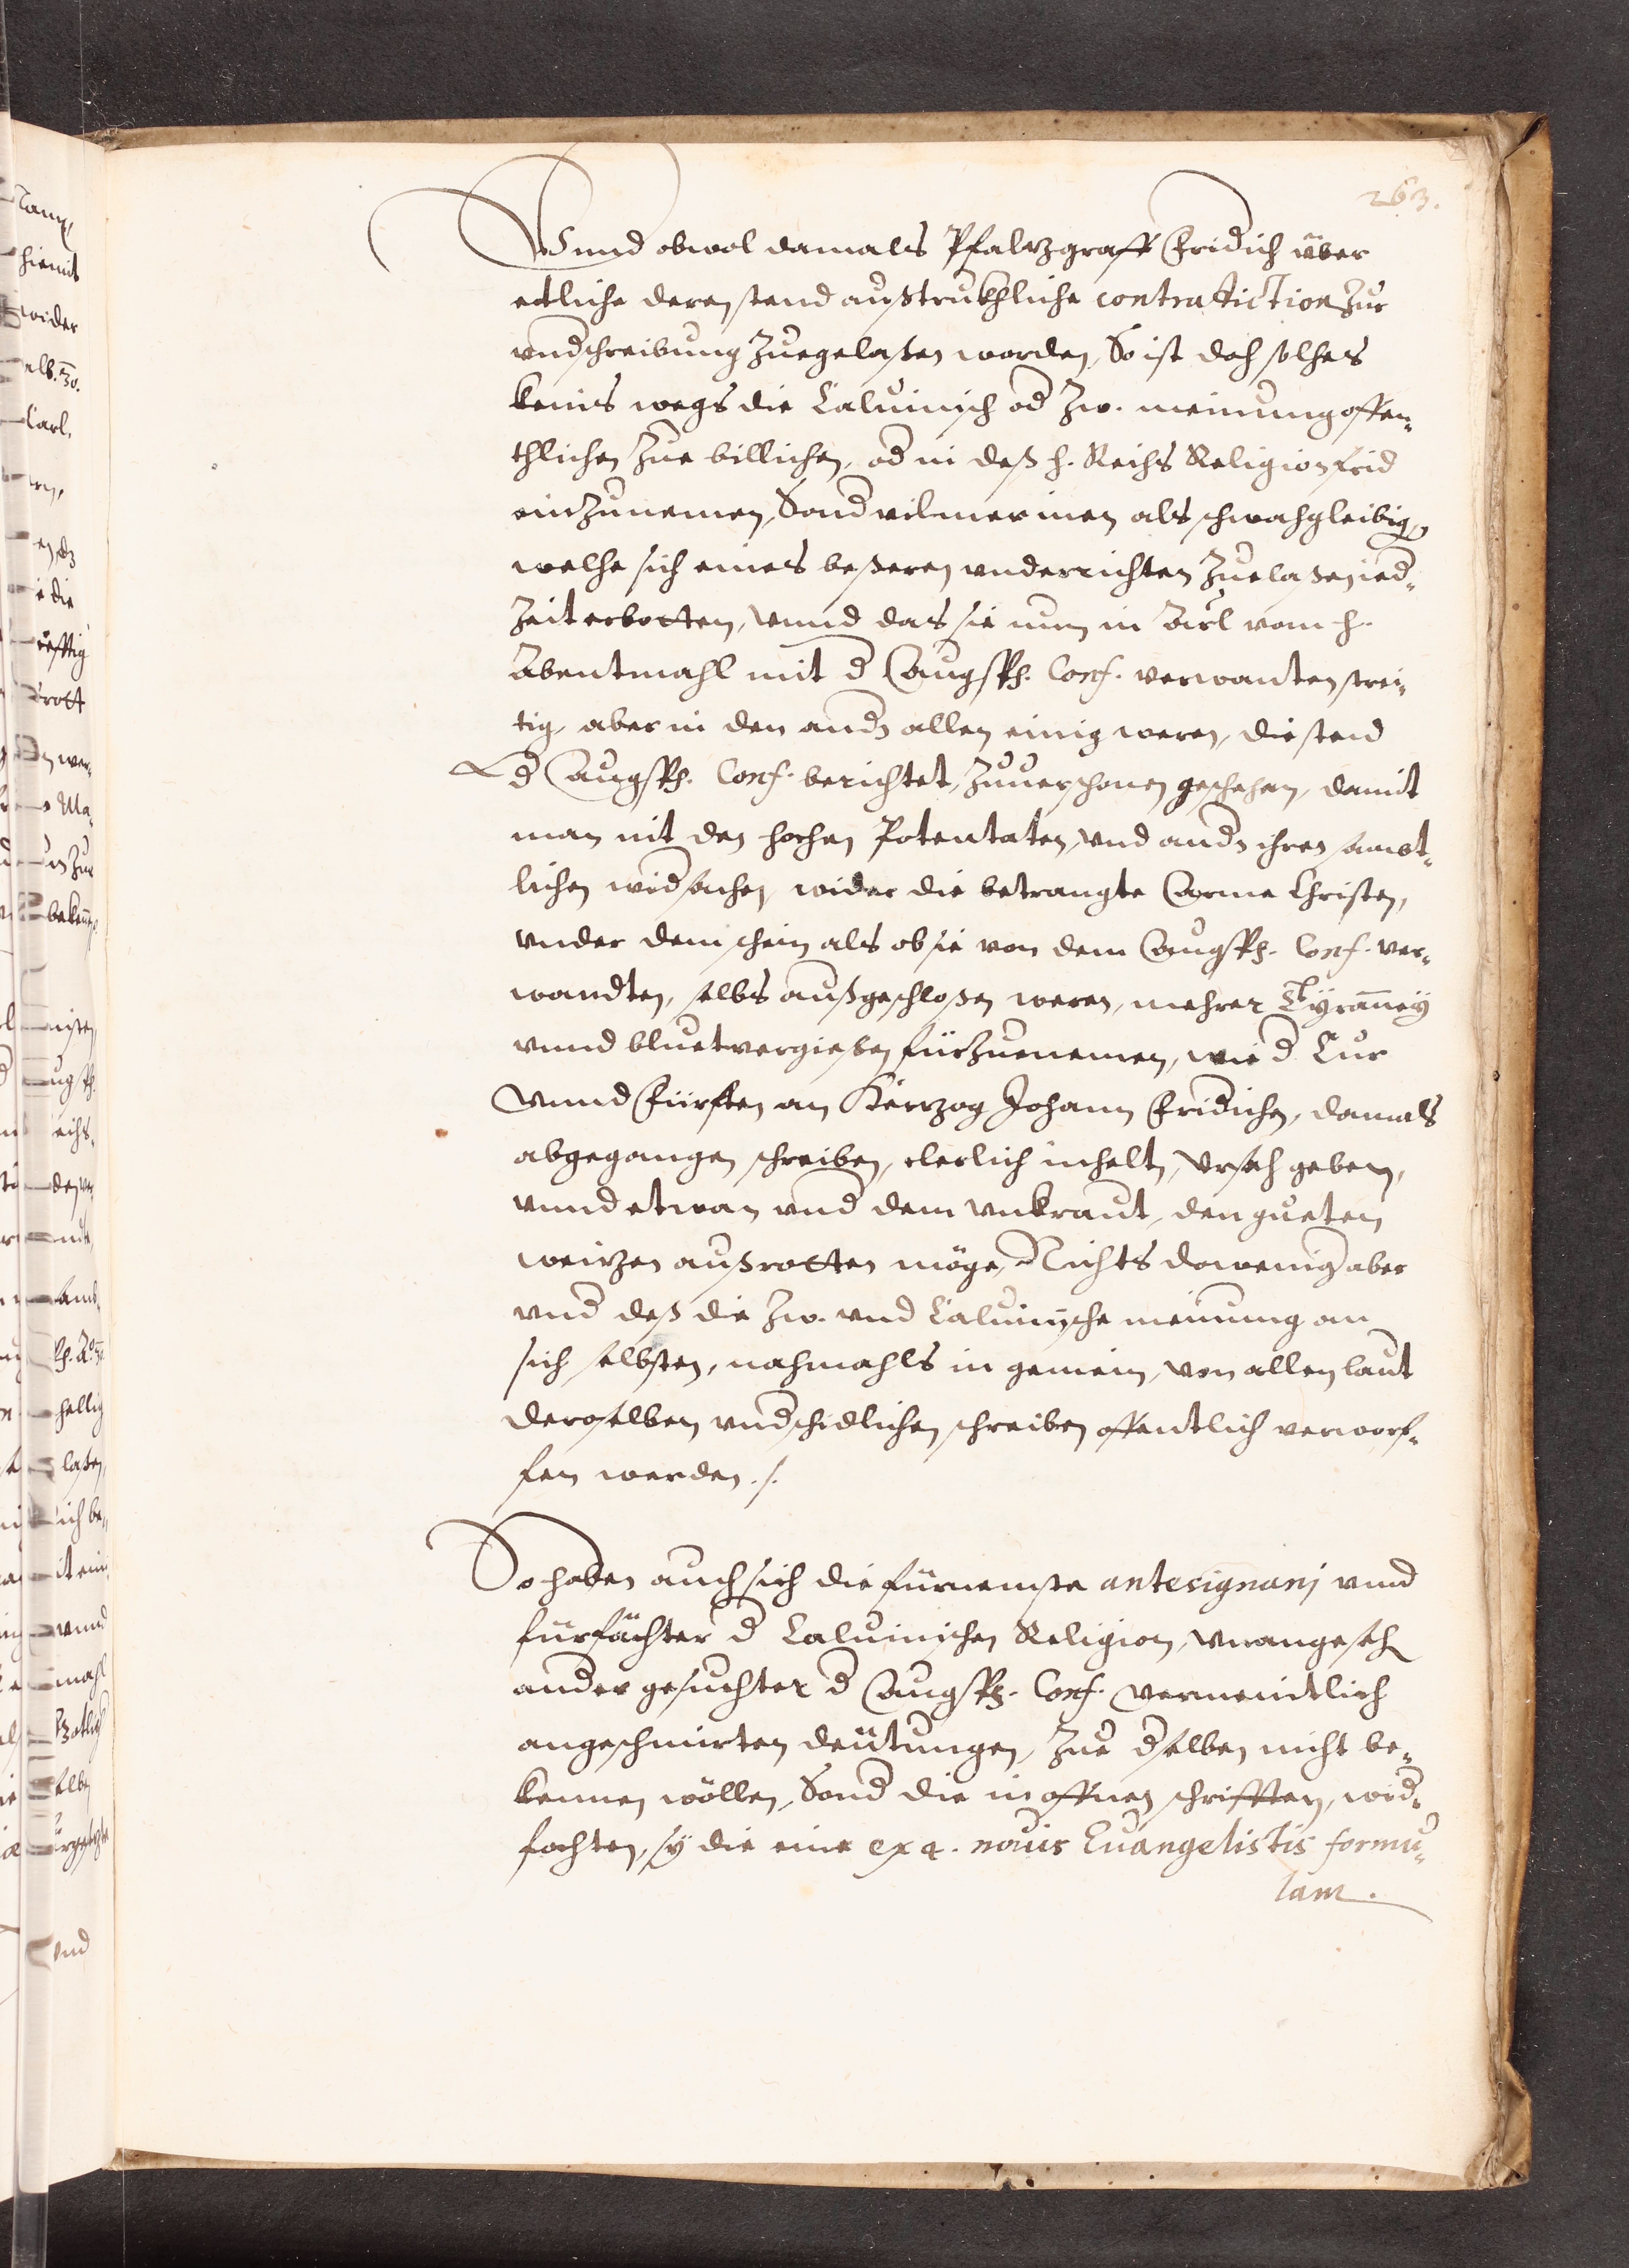 263.
Vnnd obwol damals Pfaltzgraff Fridich über
etliche deren stend außtrukhliche contradiction zur
vndschreibung zuegelaßen worden, So ist doch solches
keins wegs die Caluinisch od Zw. meinung offen¬
thlichen zue billichen, od in deß h. Reichs Religionfrid
einzunemen, Sond vilmer inen als schwachgleibig,
welche sich eines beßeren vnderrichten zuelaßen ied¬
zeit erbotten, vnnd das sie nun in Articl vom h.
Abentmahl mit d Augsp. Conf. verwanten strei¬
tig, aber in den andn allen einig weren, die stend
d Augsp. Conf. berichtet, zuuerschonen geschehen, damit
man nit den hochen Potentaten, vnd andn ihren samt¬
lichen widsachen, wider die betrangte Arme Christen,
vnder dem schein als ob sie von dem Augsp. Conf. ver¬
wandten, selbs außgeschloßen weren, mehrer Tÿranneÿ
vnnd bluetvergießen fürzuenemen, wie d Cur
vnnd Fürsten an Hertzog Johann Fridichen, damals
abgegangen schreiben, clerlich inhelt, vrsach geben,
vnnd etwan vnd dem vnkraut, den gueten
weitzen außrotten möge, Nichts doweniger aber
vnd deß die Zw. vnd Caluinische meinung an
sich selbsten, nachmahls in gemein, von allen laut
deroselben vndschidlichen schreiben offentlich verworf¬
fen werden ./.
So haben auch sich die fürnemste antesignani vnnd
fürfächter d Caluinischen Religion, vnangesech
ander gesuchter d Augsp. Conf. vermeindtlich
angeschmirten deütungen, zue dselben nicht be¬
kennen wöllen, Sond die in offnen schrifften, wid¬
fochten, sÿ die eine ex 4. nouis Euangelistis formu¬
lam.